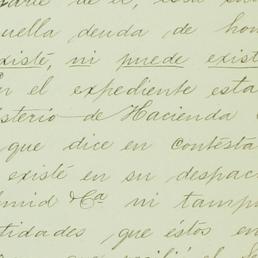 de él, esta
uella deuda de hon
existe, ni puede exist
En el expediente esta
isterio de Hacienda
que dice en contesta
existe en su despac
mid &Ca ni tamp
tidades que éstos en